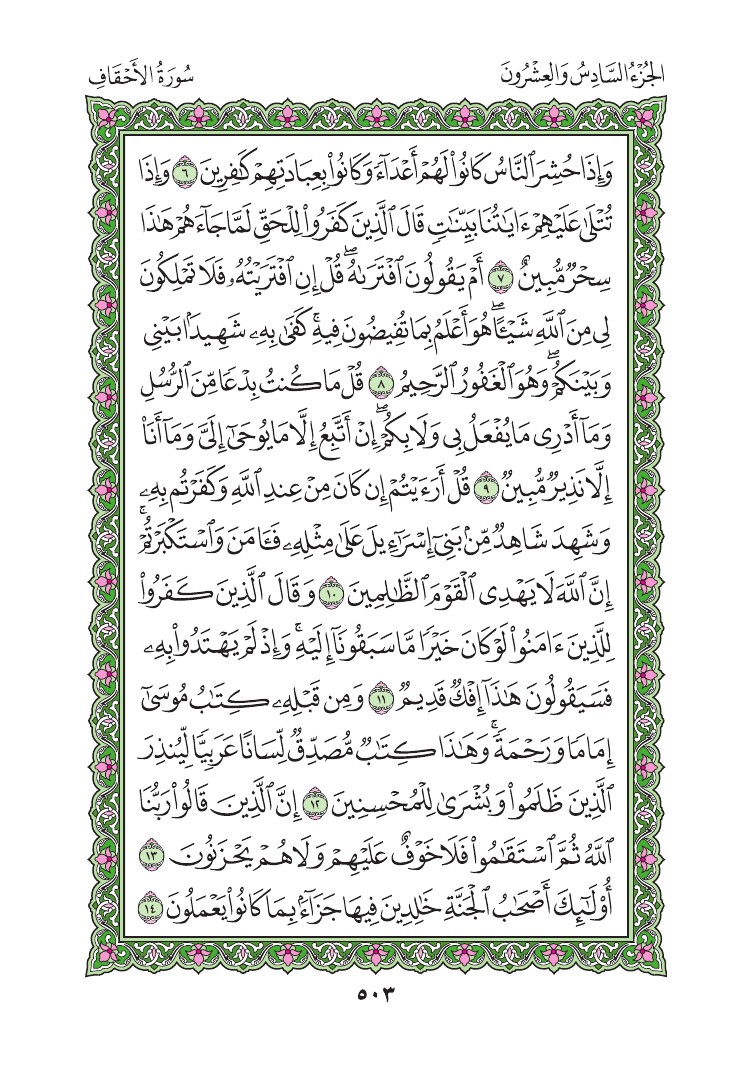 الجزء السادس والعشرون
سورة الأحقاف
وَإِذَا حُشِرَ ٱلنَّاسُ كَانُوا۟ لَهُمْ أَعْدَآءً وَكَانُوا۟ بِعِبَادَتِهِمْ كَٰفِرِينَ ٦ وَإِذَا
تُتْلَىٰ عَلَيْهِمْ ءَايَٰتُنَا بَيِّنَٰتٍ قَالَ ٱلَّذِينَ كَفَرُوا۟ لِلْحَقِّ لَمَّا جَآءَهُمْ هَٰذَا
سِحْرٌ مُّبِينٌ ٧ أَمْ يَقُولُونَ ٱفْتَرَىٰهُ ۖ قُلْ إِنِ ٱفْتَرَيْتُهُۥ فَلَا تَمْلِكُونَ
لِى مِنَ ٱللَّهِ شَيْـًٔا ۖ هُوَ أَعْلَمُ بِمَا تُفِيضُونَ فِيهِ ۚ كَفَىٰ بِهِۦ شَهِيدًۢا بَيْنِى
وَبَيْنَكُمْ ۖ وَهُوَ ٱلْغَفُورُ ٱلرَّحِيمُ ٨ قُلْ مَا كُنتُ بِدْعًا مِّنَ ٱلرُّسُلِ
وَمَآ أَدْرِى مَا يُفْعَلُ بِى وَلَا بِكُمْ ۖ إِنْ أَتَّبِعُ إِلَّا مَا يُوحَىٰٓ إِلَىَّ وَمَآ أَنَا۠
إِلَّا نَذِيرٌ مُّبِينٌ ٩ قُلْ أَرَءَيْتُمْ إِن كَانَ مِنْ عِندِ ٱللَّهِ وَكَفَرْتُم بِهِۦ
وَشَهِدَ شَاهِدٌ مِّنۢ بَنِىٓ إِسْرَٰٓءِيلَ عَلَىٰ مِثْلِهِۦ فَـَٔامَنَ وَٱسْتَكْبَرْتُمْ ۚ
إِنَّ ٱللَّهَ لَا يَهْدِى ٱلْقَوْمَ ٱلظَّٰلِمِينَ ١٠ وَقَالَ ٱلَّذِينَ كَفَرُوا۟
لِلَّذِينَ ءَامَنُوا۟ لَوْ كَانَ خَيْرًا مَّا سَبَقُونَآ إِلَيْهِ ۚ وَإِذْ لَمْ يَهْتَدُوا۟ بِهِۦ
فَسَيَقُولُونَ هَٰذَآ إِفْكٌ قَدِيمٌ ١١ وَمِن قَبْلِهِۦ كِتَٰبُ مُوسَىٰٓ
إِمَامًا وَرَحْمَةً ۚ وَهَٰذَا كِتَٰبٌ مُّصَدِّقٌ لِّسَانًا عَرَبِيًّا لِّيُنذِرَ
ٱلَّذِينَ ظَلَمُوا۟ وَبُشْرَىٰ لِلْمُحْسِنِينَ ١٢ إِنَّ ٱلَّذِينَ قَالُوا۟ رَبُّنَا
ٱللَّهُ ثُمَّ ٱسْتَقَٰمُوا۟ فَلَا خَوْفٌ عَلَيْهِمْ وَلَا هُمْ يَحْزَنُونَ ١٣
أُو۟لَٰٓئِكَ أَصْحَٰبُ ٱلْجَنَّةِ خَٰلِدِينَ فِيهَا جَزَآءًۢ بِمَا كَانُوا۟ يَعْمَلُونَ ١٤
٥٠٣